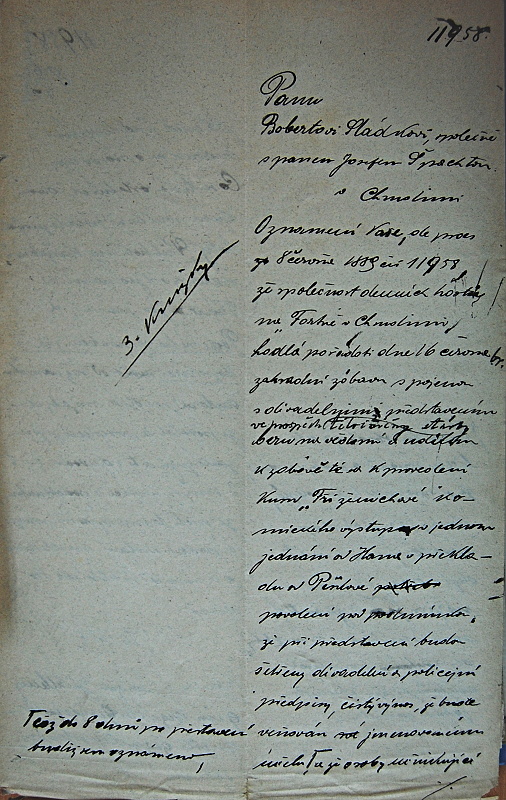 11958.
Panu
Robertovi Sládkovi, společně
s panem Josefem Špachtou
v Chrudimi
Oznámení Vaše, de praes
8 června 1889 čís 11958
že společnost
na "Fortně v Chrudimi"
hodlá pořádati dne 16 června br.
zahradní zábavu spojenou
s divadelním představením
ve prospěch
beru na vědomí a uděluji
k zábavě té a k provedení
kusu "Tři ženichové" ko-
mického výstupu v jednom
jednání od Hama v překla-
du od
povolení pod podmínkou,
že při představení budou
šetřeny divadelní a policejní
předpisy, čistý výnos, že bude
věnován jmenovanému
účelu, že osoby účinkující
3.
Též do 8 dnů po představení
budiž sem oznámeno,